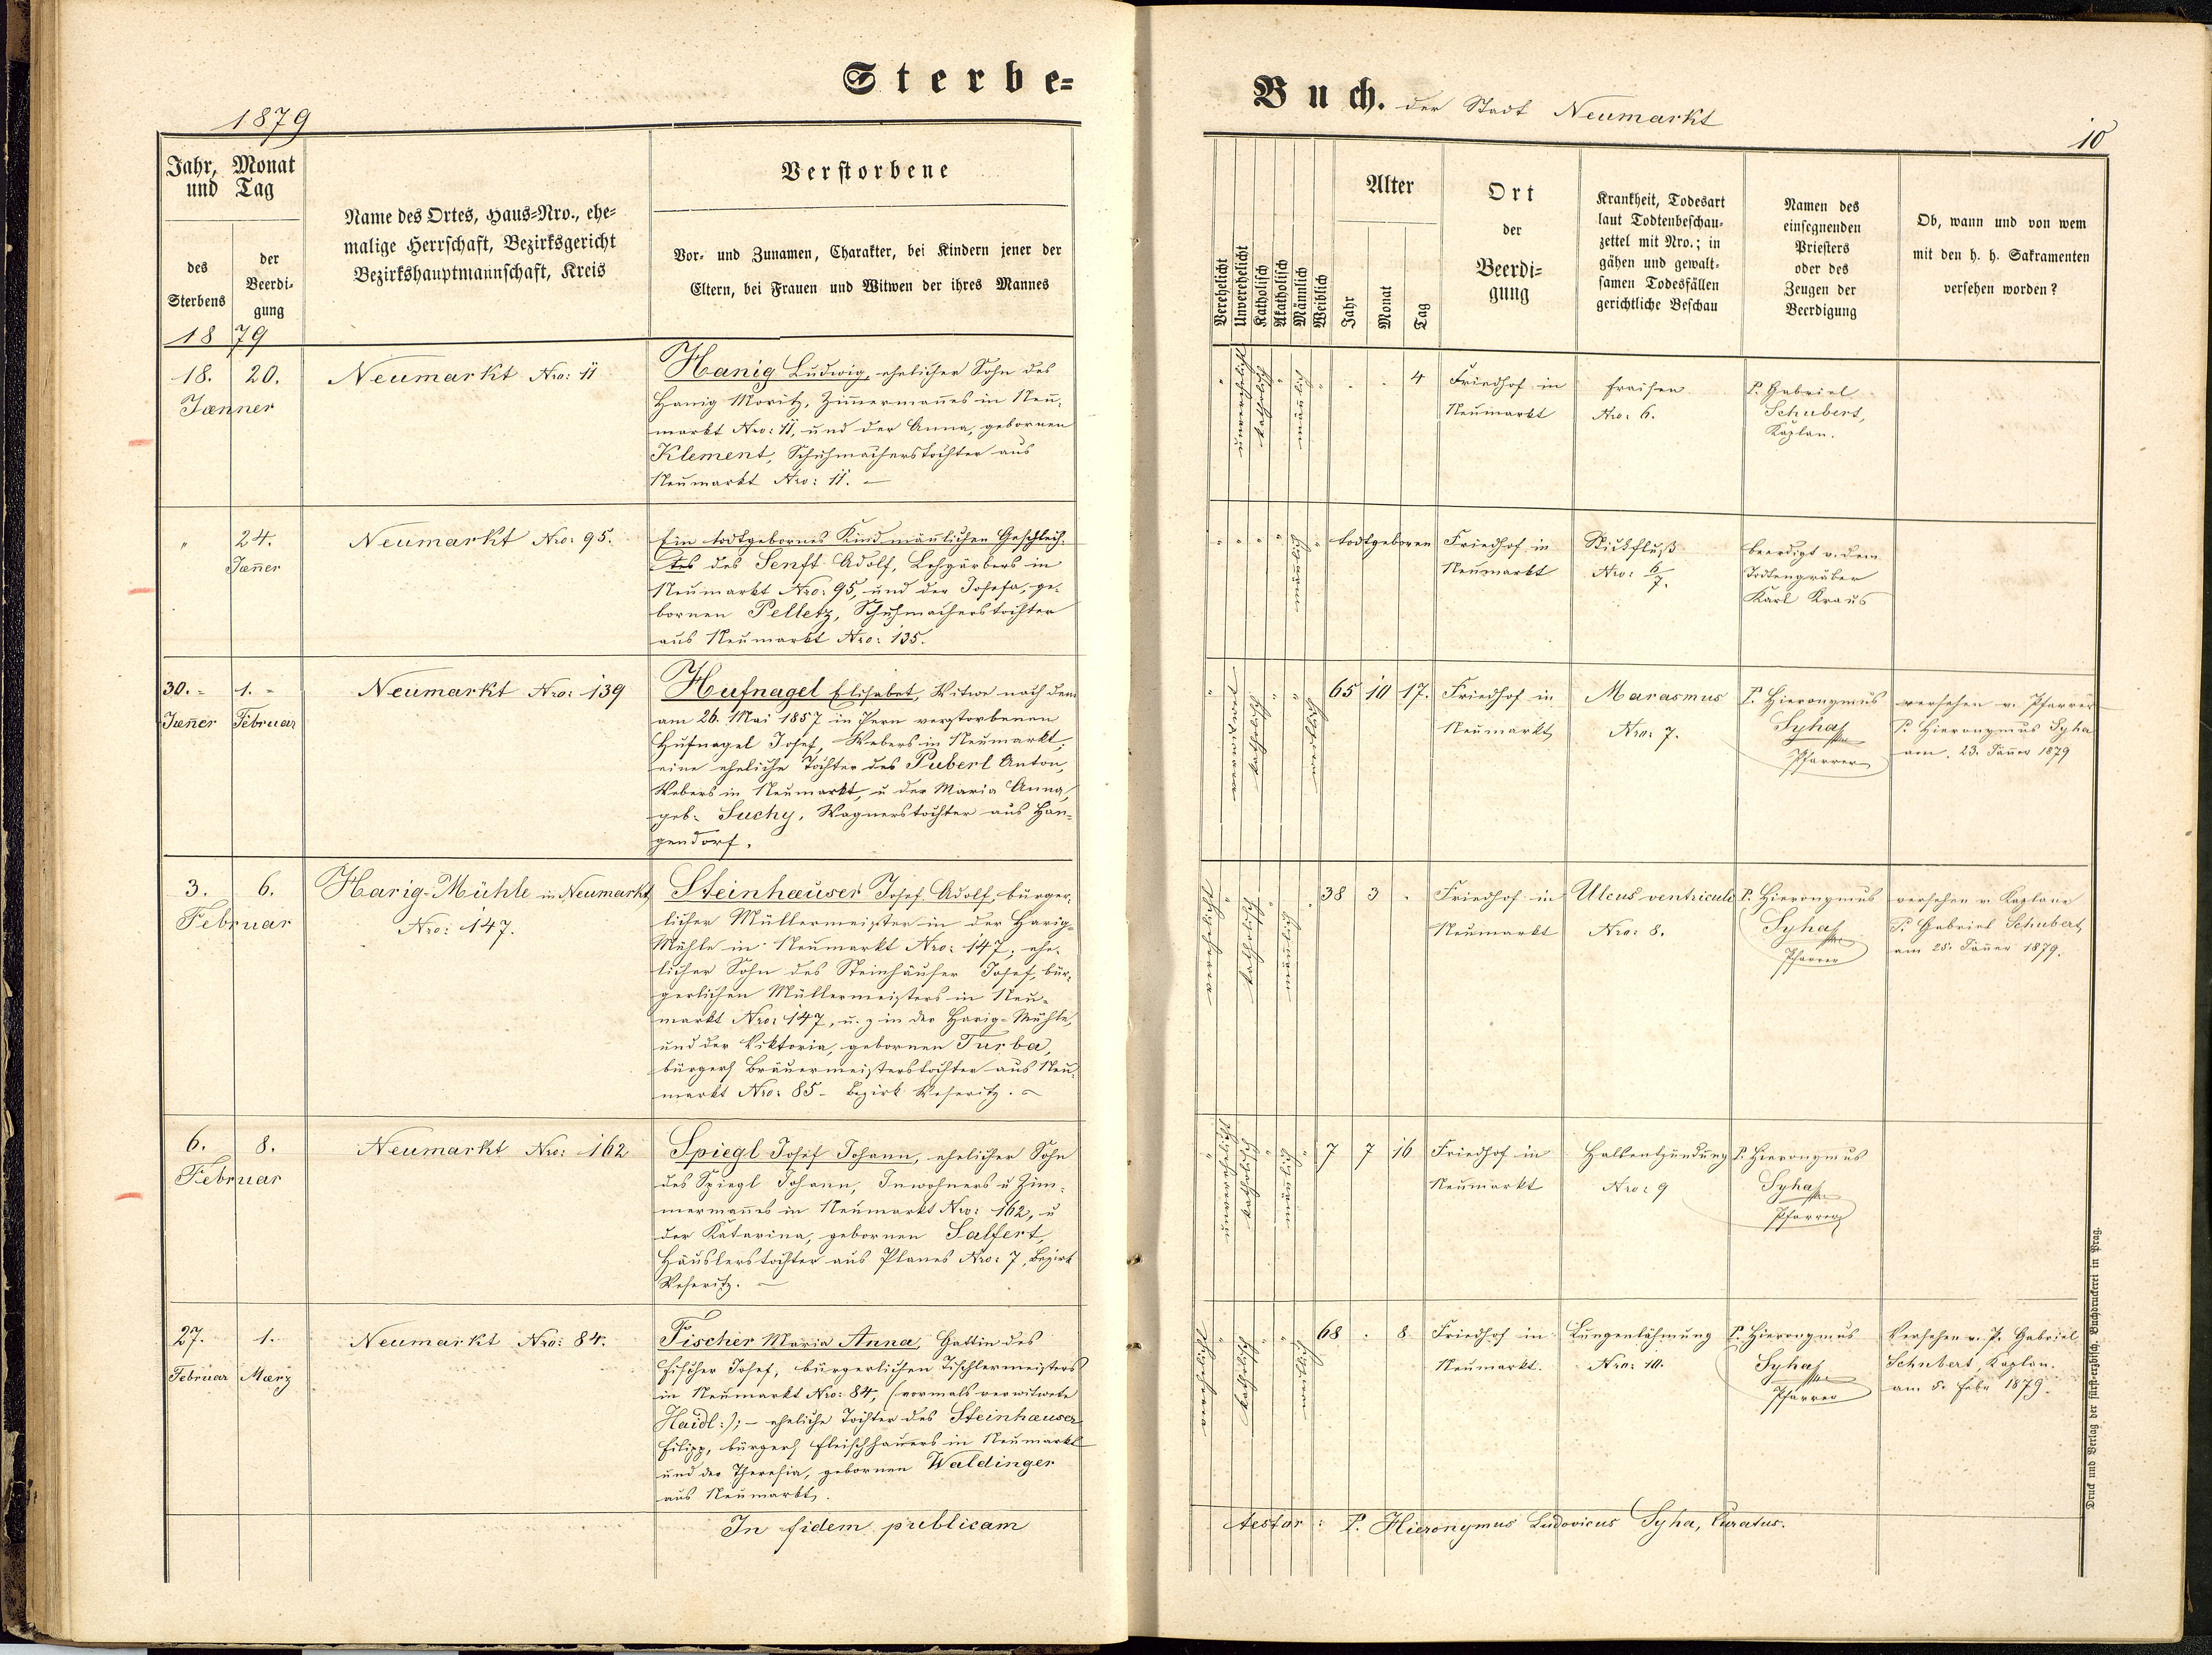 Sterbe=
1879
Jahr, Monat
und Tag
des
Sterbens
der
Beerdi=
gung
18 79
Name des Ortes, Haus=Nro., ehe=
malige Herrschaft, Bezirksgericht
Bezirkshauptmannschaft, Kreis
Verstorbene
Vor= und Zunamen, Charakter, bei Kindern jener der
Eltern, bei Frauen und Witwen der ihres Mannes
18. 20.
Jænner
Neumarkt Nro: 11
Hanig Ludwig, ehelicher Sohn des
Hanig Moritz, Zim̅erman̅es in Neu=
markt Nro: 11, und der Anna, gebornen
Klement, Schuhmacherstochter aus
Neumarkt Nro: 11. –
" 24.
Jæn̅er
Neumarkt Nro: 95.
Ein todtgebornes Kind män̅lichen Geschlech=
tes des Senft Adolf, Lohgärbers in
Neumarkt Nro: 95, und der Josefa, ge=
bornen Pelletz, Schuhmacherstochter
aus Neumarkt Nro: 135.
30. - 1. -
Jæn̅er Februar
Neumarkt Nro: 139
Hufnagel Elisabet, Witwe nach dem
am 26. Mai 1857 in Pern verstorbenen
Hufnagel Josef, Webers in Neumarkt;
eine eheliche Tochter des Puberl Anton,
Webers in Neumarkt, u der Maria Anna,
geb. Suchy, Wagnerstochter aus Han=
gendorf.
3. 6.
Februar
Harig-Mühle in Neumarkt
Nro: 147.
Steinhæuser Josef Adolf, bürger=
licher Müllermeister in der Harig=
Mühle in Neumarkt Nro: 147; ehe=
licher Sohn des Steinhäuser Josef, bür=
gerlichen Müllermeisters in Neu=
markt Nro: 147, u. z in der Harig-Mühle,
und der Viktoria, gebornen Turba,
bürgerl Bräuermeisterstochter aus Neu=
markt Nro: 85 - Bezirk Weseritz. –
6. 8.
Februar
Neumarkt Nro: 162
Spiegl Josef Johann, ehelicher Sohn
des Spiegl Johann, Inwohners u Zim=
merman̅es in Neumarkt Nro: 162, u
der Katarina, gebornen Salfert,
Häuslerstochter aus Planes Nro: 7, Bezirk
Weseritz. –
27. 1.
Februar Mærz
Neumarkt Nro: 84.
Fischer Maria Anna, Gattin des
Fischer Josef, bürgerlichen Tischlermeisters
in Neumarkt Nro: 84, (vormals verwitwete
Haidl:); – eheliche Tochter des Steinhæuser
Filipp, bürgerl Fleischhauers in Neumarkt
und der Theresia, gebornen Waldinger
aus Neumarkt.
In fidem publicam
Buch. der Stadt Neumarkt
10
Verehelicht
Unverehelicht
Katholisch
Akatholisch
Männlich
Weiblich
Alter
Jahr
Monat
Tag
Ort
der
Beerdi=
gung
Krankheit, Todesart
laut Todtenbeschau=
zettel mit Nro.; in
gähen und gewalt=
samen Todesfällen
gerichtliche Beschau
Namen des
einsegnenden
Priesters
oder des
Zeugen der
Beerdigung
Ob, wann und von wem
mit den h. h. Sakramenten
versehen worden?
" unverehelicht katholisch " männlich " . . 4
Friedhof in
Neumarkt
Fraisen
Nro: 6.
P. Gabriel
Schubert,
Kaplan.
" " " " männlich " todtgeboren
Friedhof in
Neumarkt
Stickfluß
Nro: 6/7.
beerdigt v. dem
Todtengräber
Karl Kraus
" verwitwet katholisch " " weiblich 65 10 17.
Friedhof in
Neumarkt
Marasmus
Nro: 7.
P. Hieronymus
Syha
Pfarrer
versehen v. Pfarrer
P. Hieronymus Syha
am 23. Jän̅er 1879
verehelicht " katholisch " männlich " 38 3 .
Friedhof in
Neumarkt
Ulcus ventriculi
Nro: 8.
P. Hieronymus
Syha
Pfarrer
versehen v. Kaplane
P. Gabriel Schubert
am 25. Jän̅er 1879.
" unverehelicht katholisch " männlich " 7 7 16
Friedhof in
Neumarkt
Halsentzündung
Nro: 9
P. Hieronymus
Syha
Pfarrer
verehelicht " katholisch " " weiblich 68 . 8
Friedhof in
Neumarkt.
Lungenlähmung
Nro: 10.
P. Hieronymus
Syha
Pfarrer
Versehen v. P. Gabriel
Schubert, Kaplan.
am 5. Febr 1879.
testor: P. Hieronymus Ludovicus Syha, Curatus.
Druck und Verlag der fürst=erzbisch. Buchdruckerei in Prag.